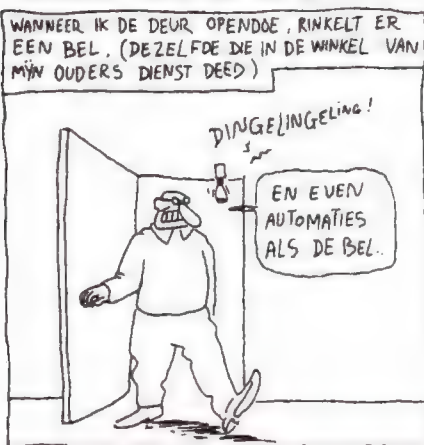 WANNEER IK DE DEUR OPENDOE, RINKELT ER
EEN BEL. (DEZELFDE DIE IN DE WINKEL VAN
MYN OUDERS DIENST DEED)
DINGELINGELING!
EN EVEN
AUTOMATIES
ALS DE BEL..